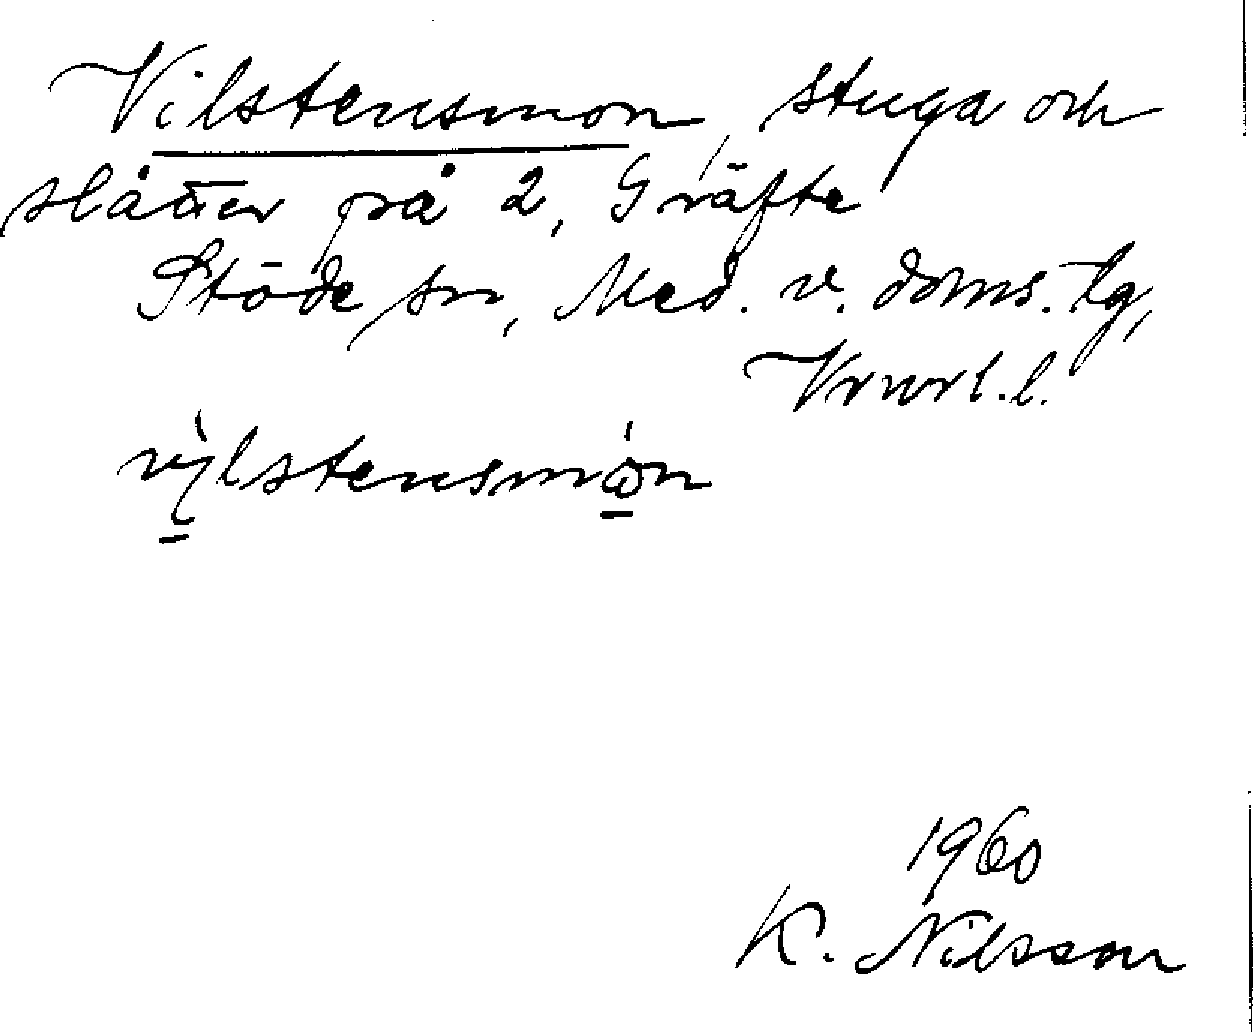 Vilstensmon, stuga och
slåtter på 2, Gräfte
Stöde sn, Med. v. doms. tg,
Vnorl. l.
vilstensmon
1960
K. Nilsson